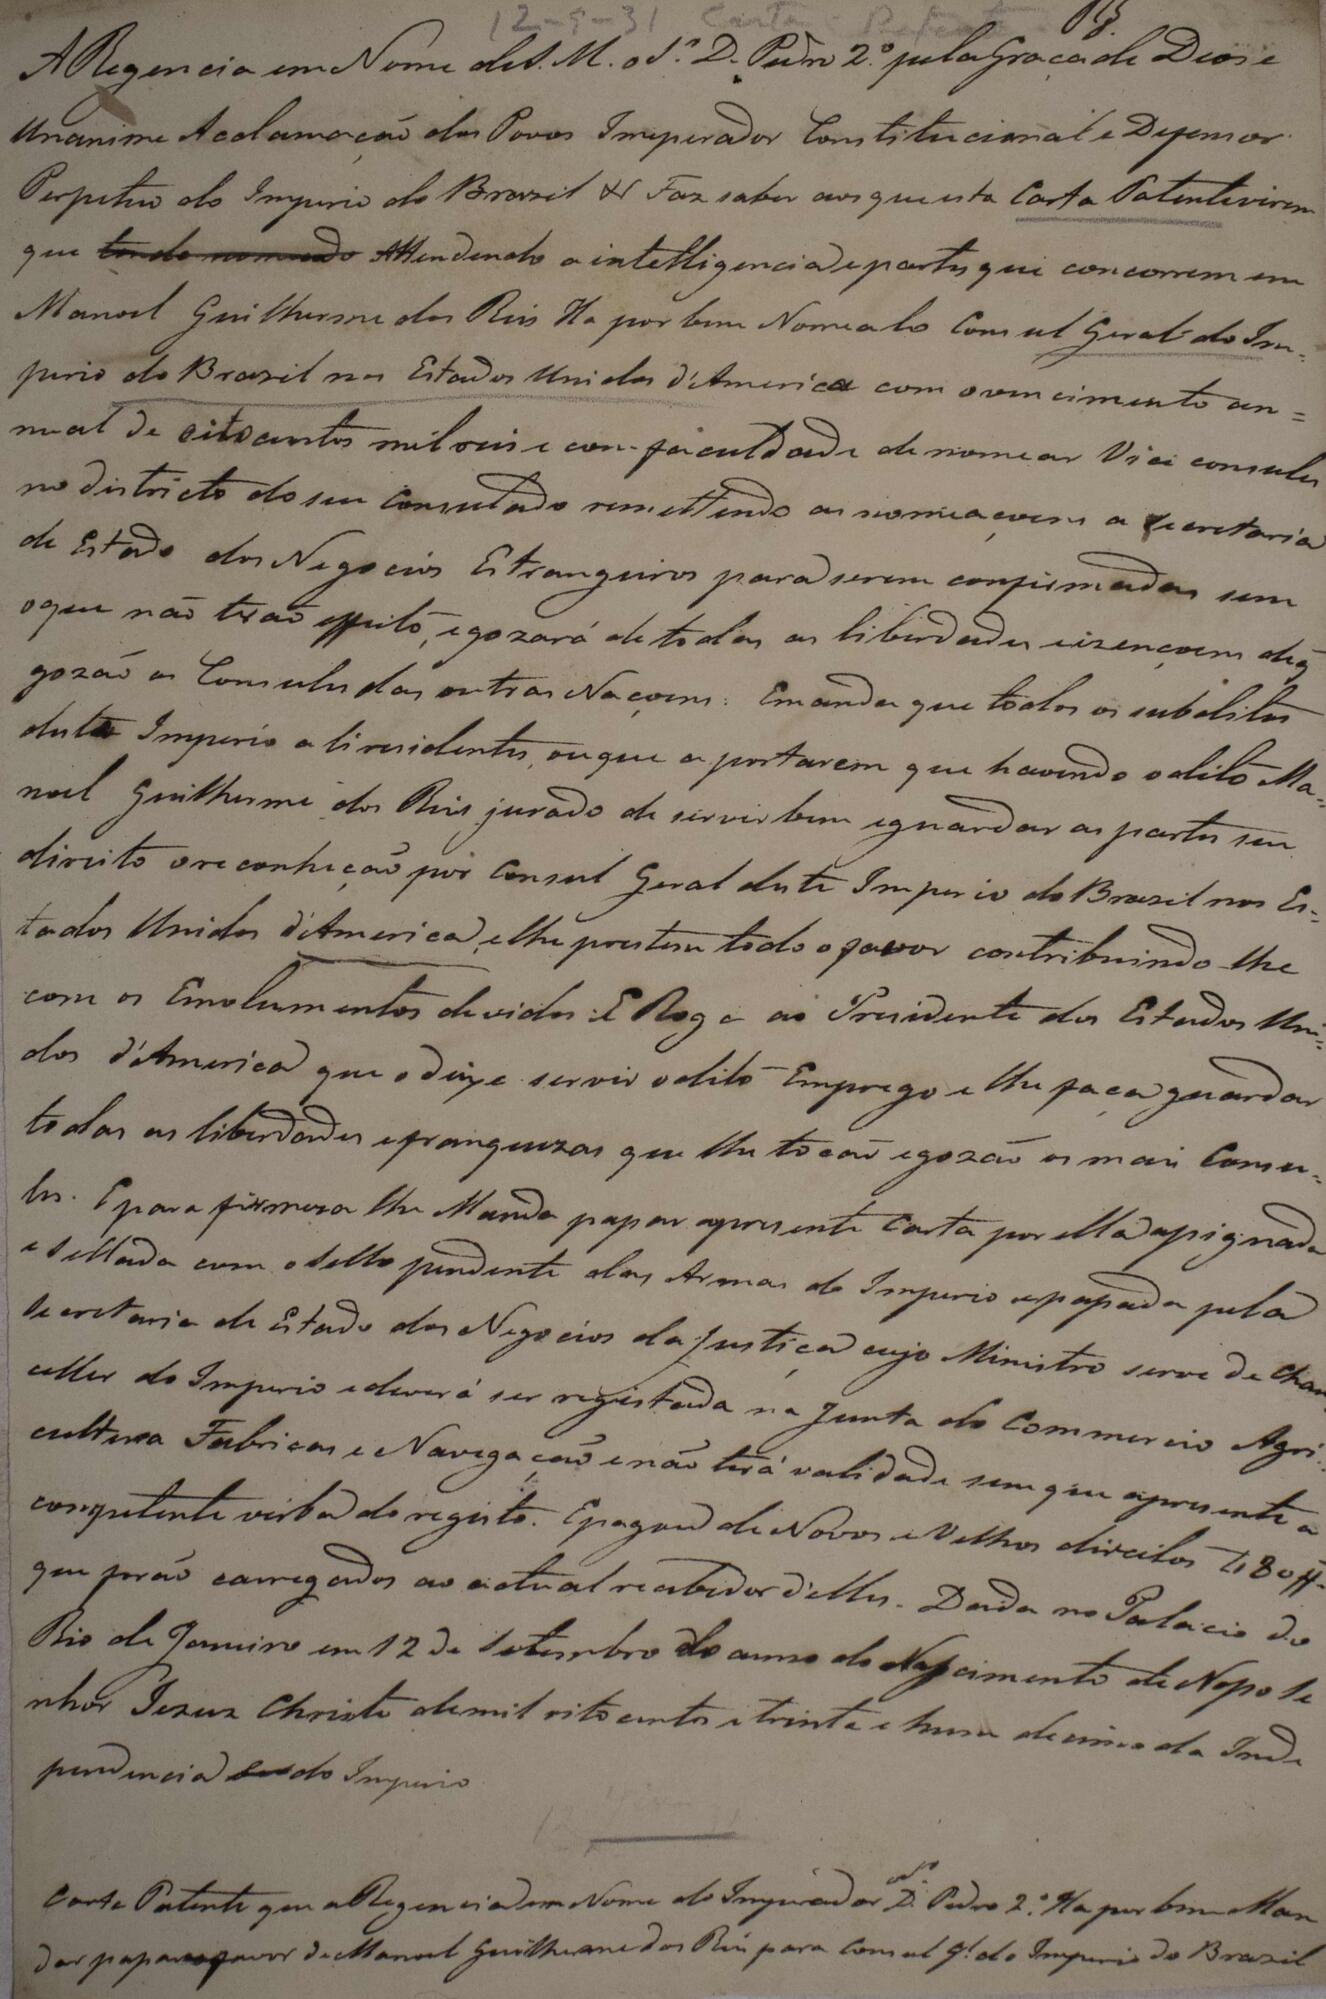 12-9-31 Carta Patente
A Regencia em Nome de S. M. o Sr. D. Pedro 2.º pela Graça de Deos e
Unanime Acclamação dos Povos Imperador Constitucional e Defensor
Perpetuo do Imperio do Brazil &. Faz saber aos que esta Carta Patente virem
que tendo nomeado Attendendo a intelligencia e partes que concorrem em
Manoel Guilherme dos Reis Ha por bem Nomealo Consul Geral do Im-
perio do Brazil nos Estados Unidos d'America com o vencimento an=
nual de oitocentos mil reis e com faculdade de nomear Vice consules
no districto do seu Consulado remettendo as nomeaçoens a Secretaria
de Estado dos Negocios Estrangeiros para serem confirmadas sem
o que não terão effeito, e gozará de todas as liberdades e izençoens de q
gozão os Consules das outras Naçoens: E manda que todos os subditos
deste Imperio ali residentes, ou que aportarem que havendo o dito Ma-
noel Guilherme dos Reis jurado de servir bem e guardar as partes seu
direito o reconheção por Consul Geral deste Imperio do Brazil nos Es-
tados Unidos d'America, e lhe prestem todo o favor contribuindo lhe
com os Emolumentos devidos: E Roga ao Presidente dos Estados Uni-
dos d'America que o deixe servir o dito Emprego e lhe faça guardar
todas as liberdades e franquezas que lhe tocão e gozão os mais Consu-
les. E para firmeza lhe Manda passar a presente Carta por ella assignada
e sellada com o sello pendente das Armas do Imperio e passada pela
Secretaria de Estado dos Negocios da Justiça cujo Ministro serve de Chan
celler do Imperio e deverá ser registada na Junta do Commercio Agri-
cultura Fabricas e Navegação e não terá validade sem que apresente a
competente verba do registo. E pagou de Novos e Velhos direitos
que forão carregados ao actual recebedor d'elles. Dada no Palacio do
Rio de Janeiro em 12 de Setembro do anno do Nascimento de Nosso Se
nhor Jezus Christo de mil oitocentos e trinta e hum decimo da Inde
pendencia e do Imperio
Carta Patente que a Regencia em Nome do Imperador D. Pedro 2.º Ha por bem Man
dar passar a favor de Manoel Guilherme dos Reis para Consul Gl. do Imperio do Brazil